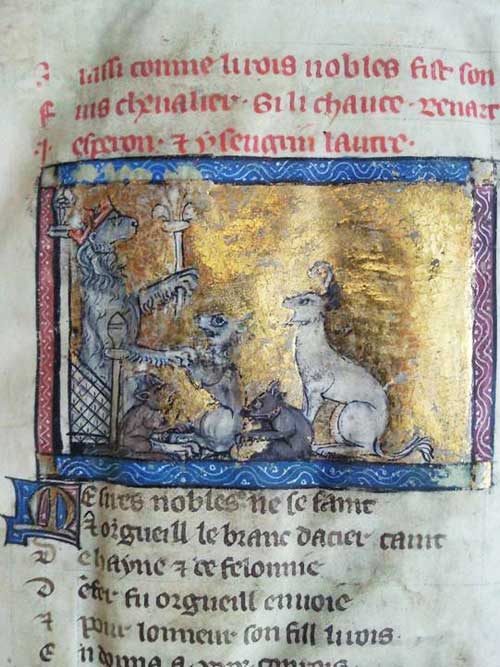 comme li rois nobles fist son
F ius chevalier · Si li chauce · Renart
·I· esperon · ⁊ ysengrin lautre ·
Mesires nobles ne se faint
orgueill le branc dacier caint
De hayne ⁊ de felonnie
fu orgueill envoie
⁊ pour lonneur son fill li rois ·
En donna a